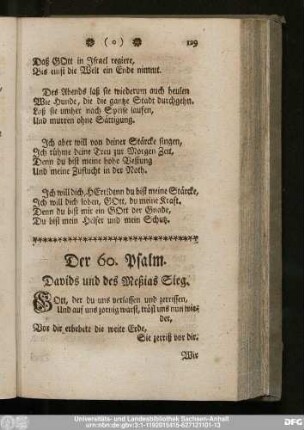 ( o ) 129
Daß GOtt in Israel regiere,
Bis einst die Welt ein Ende nimmt.
Des Abends laß sie wiederum auch heulen
Wie Hunde, die die gantze Stadt durchgehn.
Laß sie umher nach Speise laufen,
Und murren ohne Sättigung.
Ich aber will von deiner Stärcke singen,
Ich rühme deine Treu zur Morgen Zeit,
Denn du bist meine hohe Vestung
Und meine Zuflucht in der Noth.
Ich will dich, HErr! denn du bist meine Stärcke,
Ich will dich loben, GOtt, du meine Kraft,
Denn du bist mir ein GOtt der Gnade,
Du bist mein Helfer und mein Schutz.
Der 60. Psalm.
Davids und des Meßias Sieg.
GOtt, der du uns verlassen und zerrissen,
Und auf uns zornig warst, tröst uns nun wie=
der,
Vor dir erbebete die weite Erde,
Sie zerriß vor dir.
Wir
Universitäts- und Landesbibliothek Sachsen-Anhalt
urn:nbn:de:gbv:3:1-1192015415-627121101-13
DFG